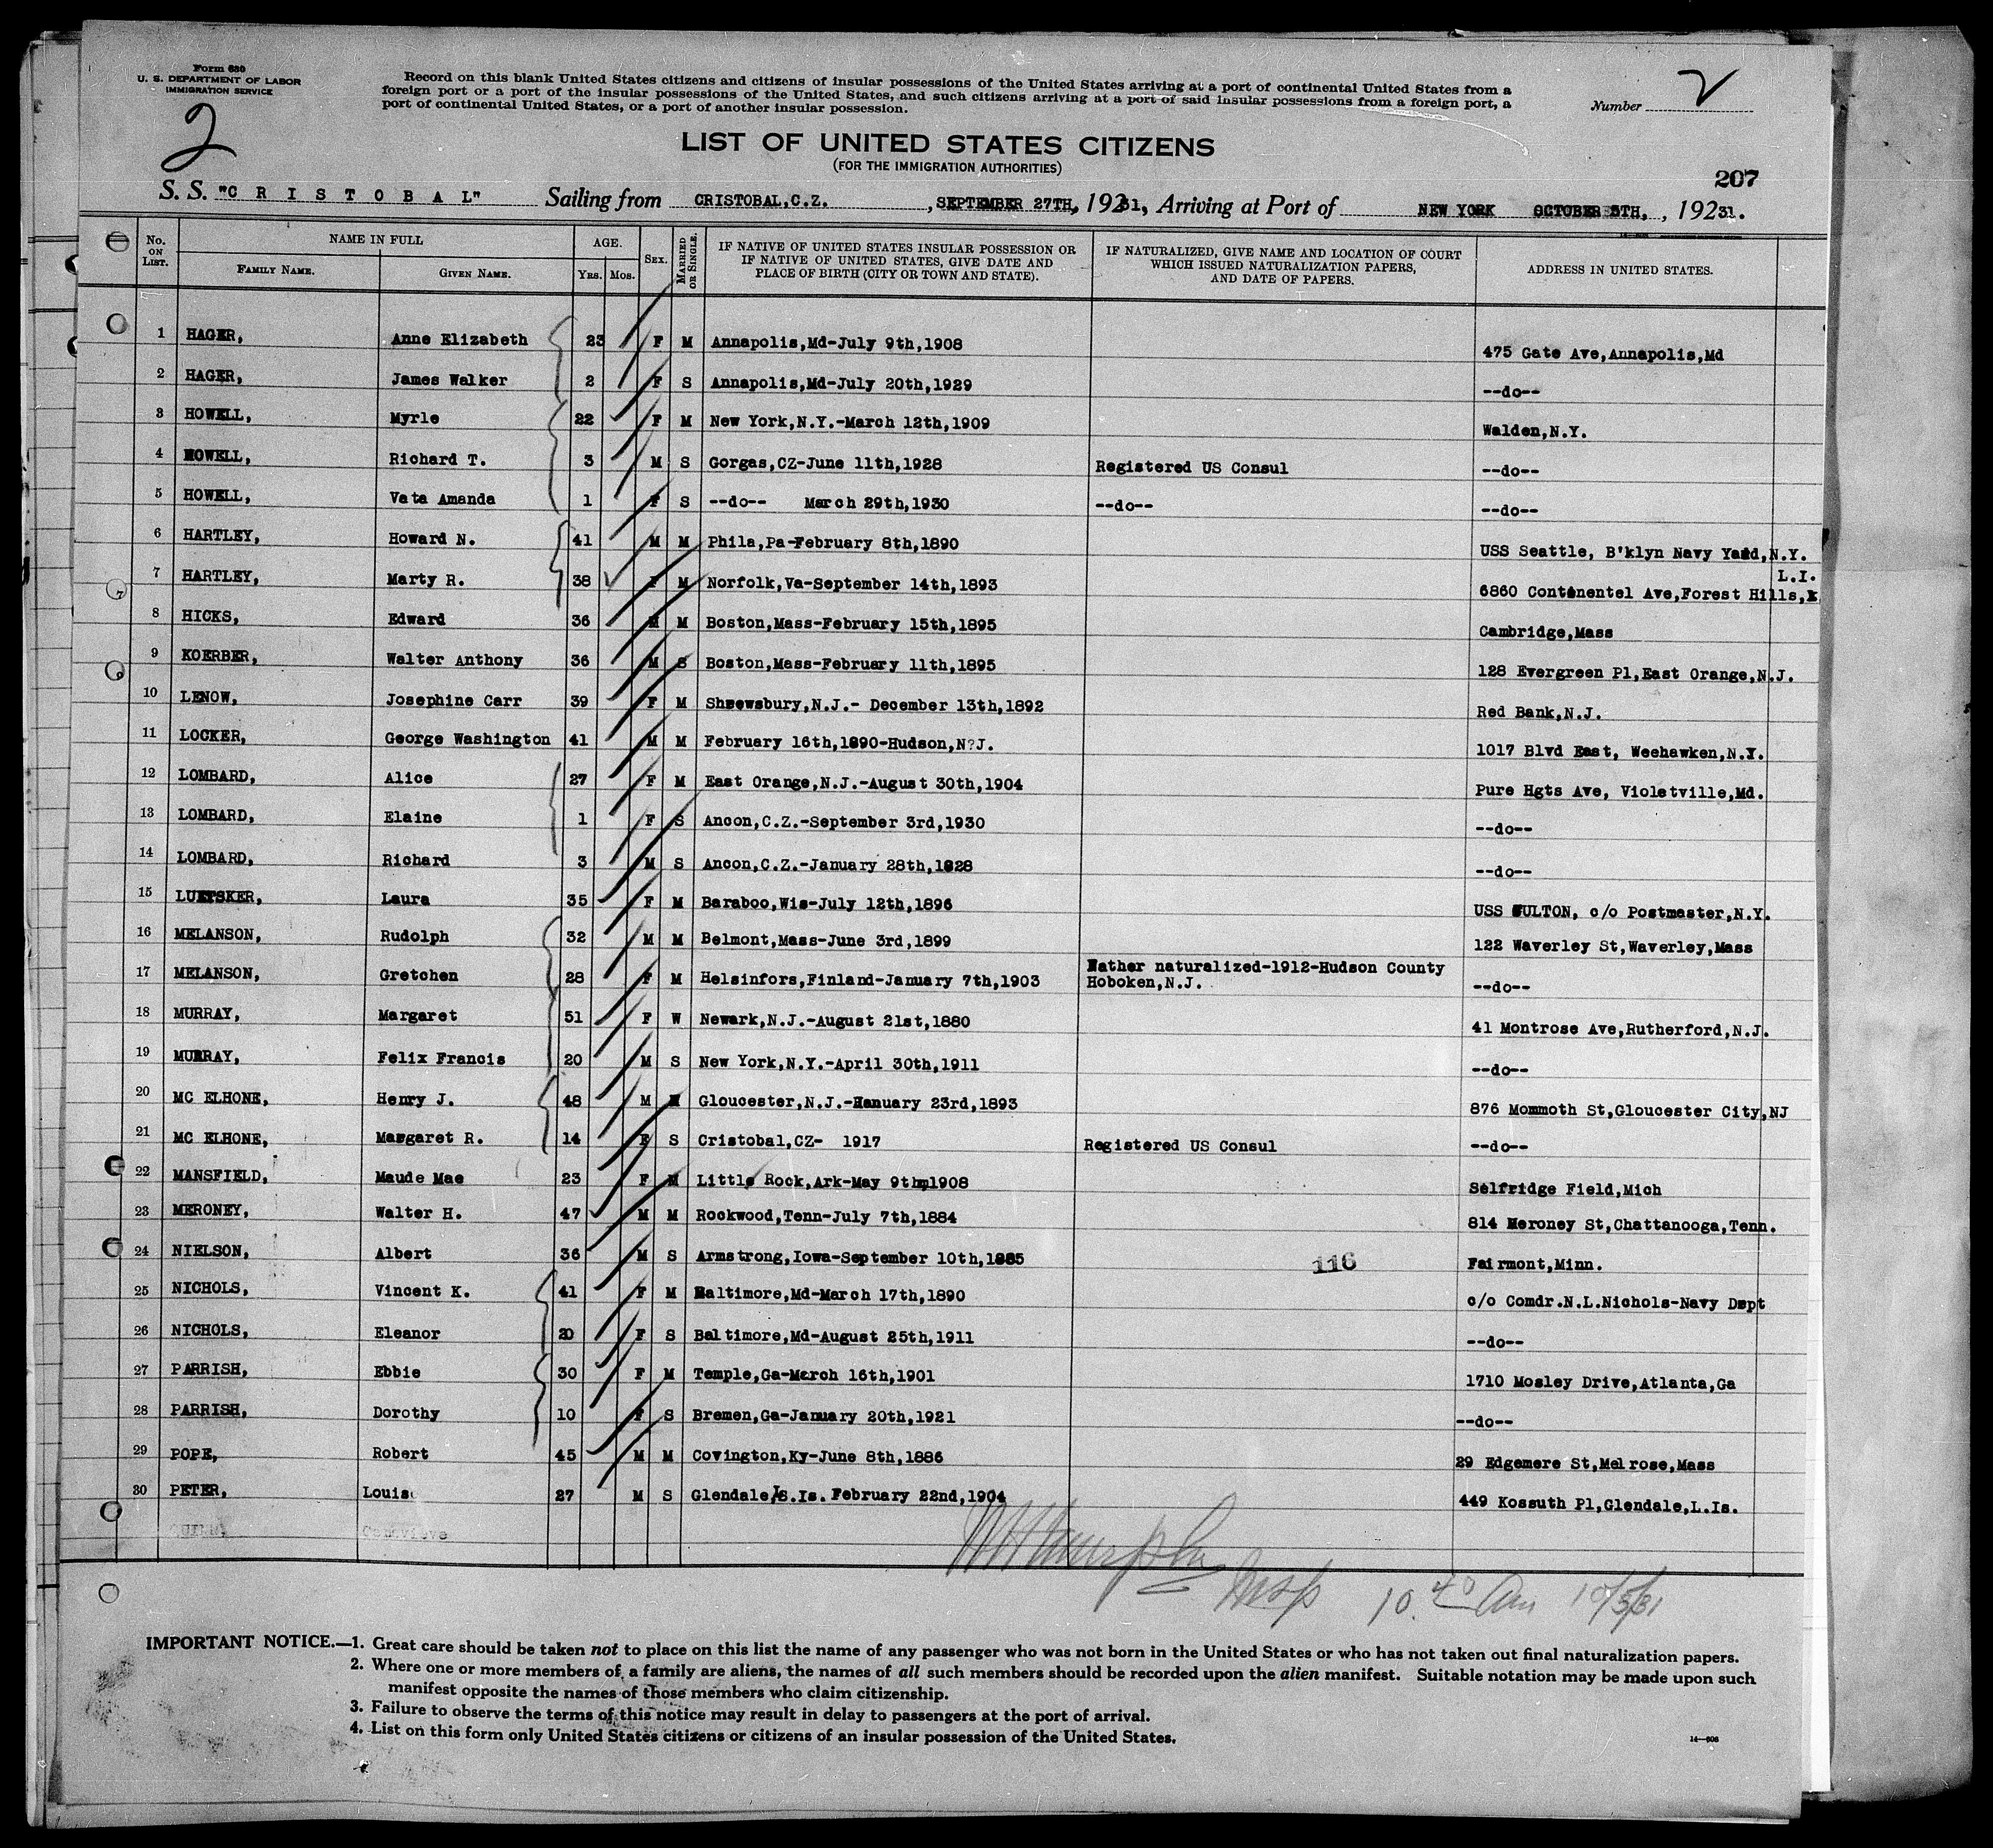 Form 680
U. S. DEPARTMENT OF LABOR
IMMIGRATION SERVICE
2
Record on this blank United States citizens and citizens of insular possessions of the United States arriving at a port of continental United States from a
foreign port or a port of the insular possessions of the United States, and such citizens arriving at a port of said insular possessions from a foreign port, a
port of continental United States, or a port of another insular possession.
Number 2
LIST OF UNITED STATES CITIZENS
(FOR THE IMMIGRATION AUTHORITIES)
207
S. S. "C R I S T O B A L" Sailing from CRISTOBAL,C.Z. , SEPTEMBER 27TH, 19231, Arriving at Port of NEW YORK OCTOBER 5TH, , 19231.
No. ON LIST. NAME IN FULL FAMILY NAME. GIVEN NAME. AGE. YRS. MOS. SEX. MARRIED OR SINGLE. IF NATIVE OF UNITED STATES INSULAR POSSESSION OR IF NATIVE OF UNITED STATES, GIVE DATE AND PLACE OF BIRTH (CITY OR TOWN AND STATE). IF NATURALIZED, GIVE NAME AND LOCATION OF COURT WHICH ISSUED NATURALIZATION PAPERS, AND DATE OF PAPERS. ADDRESS IN UNITED STATES.
1 HAGER, Anne Elizabeth 23 F M Annapolis,Md-July 9th,1908 475 Gate Ave,Annapolis,Md
2 HAGER, James Walker 2 F S Annapolis,Md-July 20th,1929 --do--
3 HOWELL, Myrle 22 F M New York,N.Y.-March 12th,1909 Walden,N.Y.
4 HOWELL, Richard T. 3 M S Gorgas,CZ-June 11th,1928 Registered US Consul --do--
5 HOWELL, Vata Amanda 1 F S --do-- March 29th,1930 --do-- --do--
6 HARTLEY, Howard N. 41 M M Phila,Pa-February 8th,1890 USS Seattle, B'klyn Navy Yard,N.Y.
7 HARTLEY, Marty R. 38 F M Norfolk,Va-September 14th,1893 6860 Continentel Ave,Forest Hills, L.I.
8 HICKS, Edward 36 M M Boston,Mass-February 15th,1895 Cambridge,Mass
9 KOERBER, Walter Anthony 36 M S Boston,Mass-February 11th,1895 128 Evergreen Pl,East Orange,N.J.
10 LENOW, Josephine Carr 39 F M Shrewsbury,N.J.- December 13th,1892 Red Bank,N.J.
11 LOCKER, George Washington 41 M M February 16th,1890-Hudson,N?J. 1017 Blvd East, Weehawken,N.Y.
12 LOMBARD, Alice 27 F M East Orange,N.J.-August 30th,1904 Pure Hgts Ave, Violetville,Md.
13 LOMBARD, Elaine 1 F S Ancon,C.Z.-September 3rd,1930 --do--
14 LOMBARD, Richard 3 M S Ancon,C.Z.-January 28th,1928 --do--
15 LUETSKER, Laura 35 F M Baraboo,Wis-July 12th,1896 USS FULTON, c/o Postmaster,N.Y.
16 MELANSON, Rudolph 32 M M Belmont,Mass-June 3rd,1899 122 Waverley St,Waverley,Mass
17 MELANSON, Gretchen 28 F M Helsinfors,Finland-January 7th,1903 Father naturalized-1912-Hudson County Hoboken,N.J. --do--
18 MURRAY, Margaret 51 F W Newark,N.J.-August 21st,1880 41 Montrose Ave,Rutherford,N.J.
19 MURRAY, Felix Francis 20 M S New York,N.Y.-April 30th,1911 --do--
20 MC ELHONE, Henry J. 48 M M Gloucester,N.J.-January 23rd,1893 876 Mommoth St,Gloucester City,NJ
21 MC ELHONE, Margaret R. 14 F S Cristobal,CZ- 1917 Registered US Consul --do--
22 MANSFIELD, Maude Mae 23 F M Little Rock,Ark-May 9th,1908 Selfridge Field,Mich
23 MERONEY, Walter H. 47 M M Rockwood,Tenn-July 7th,1884 814 Meroney St,Chattanooga,Tenn.
24 NIELSON, Albert 36 M S Armstrong,Iowa-September 10th,1885 116 Fairmont,Minn.
25 NICHOLS, Vincent K. 41 F M Baltimore,Md-March 17th,1890 c/o Comdr.N.L.Nichols-Navy Dept
26 NICHOLS, Eleanor 20 F S Baltimore,Md-August 25th,1911 --do--
27 PARRISH, Ebbie 30 F M Temple,Ga-March 16th,1901 1710 Mosley Drive,Atlanta,Ga
28 PARRISH, Dorothy 10 F S Bremen,Ga-January 20th,1921 --do--
29 POPE, Robert 45 M M Covington,Ky-June 8th,1886 29 Edgemere St,Melrose,Mass
30 PETER, Louis 27 M S Glendale,L.Is. February 22nd,1904 449 Kossuth Pl,Glendale,L.Is.
Genevieve
Murphy Insp 10.40 Am 10/5/31
IMPORTANT NOTICE.—1. Great care should be taken not to place on this list the name of any passenger who was not born in the United States or who has not taken out final naturalization papers.
2. Where one or more members of a family are aliens, the names of all such members should be recorded upon the alien manifest. Suitable notation may be made upon such
manifest opposite the names of those members who claim citizenship.
3. Failure to observe the terms of this notice may result in delay to passengers at the port of arrival.
4. List on this form only United States citizens or citizens of an insular possession of the United States.
14—606